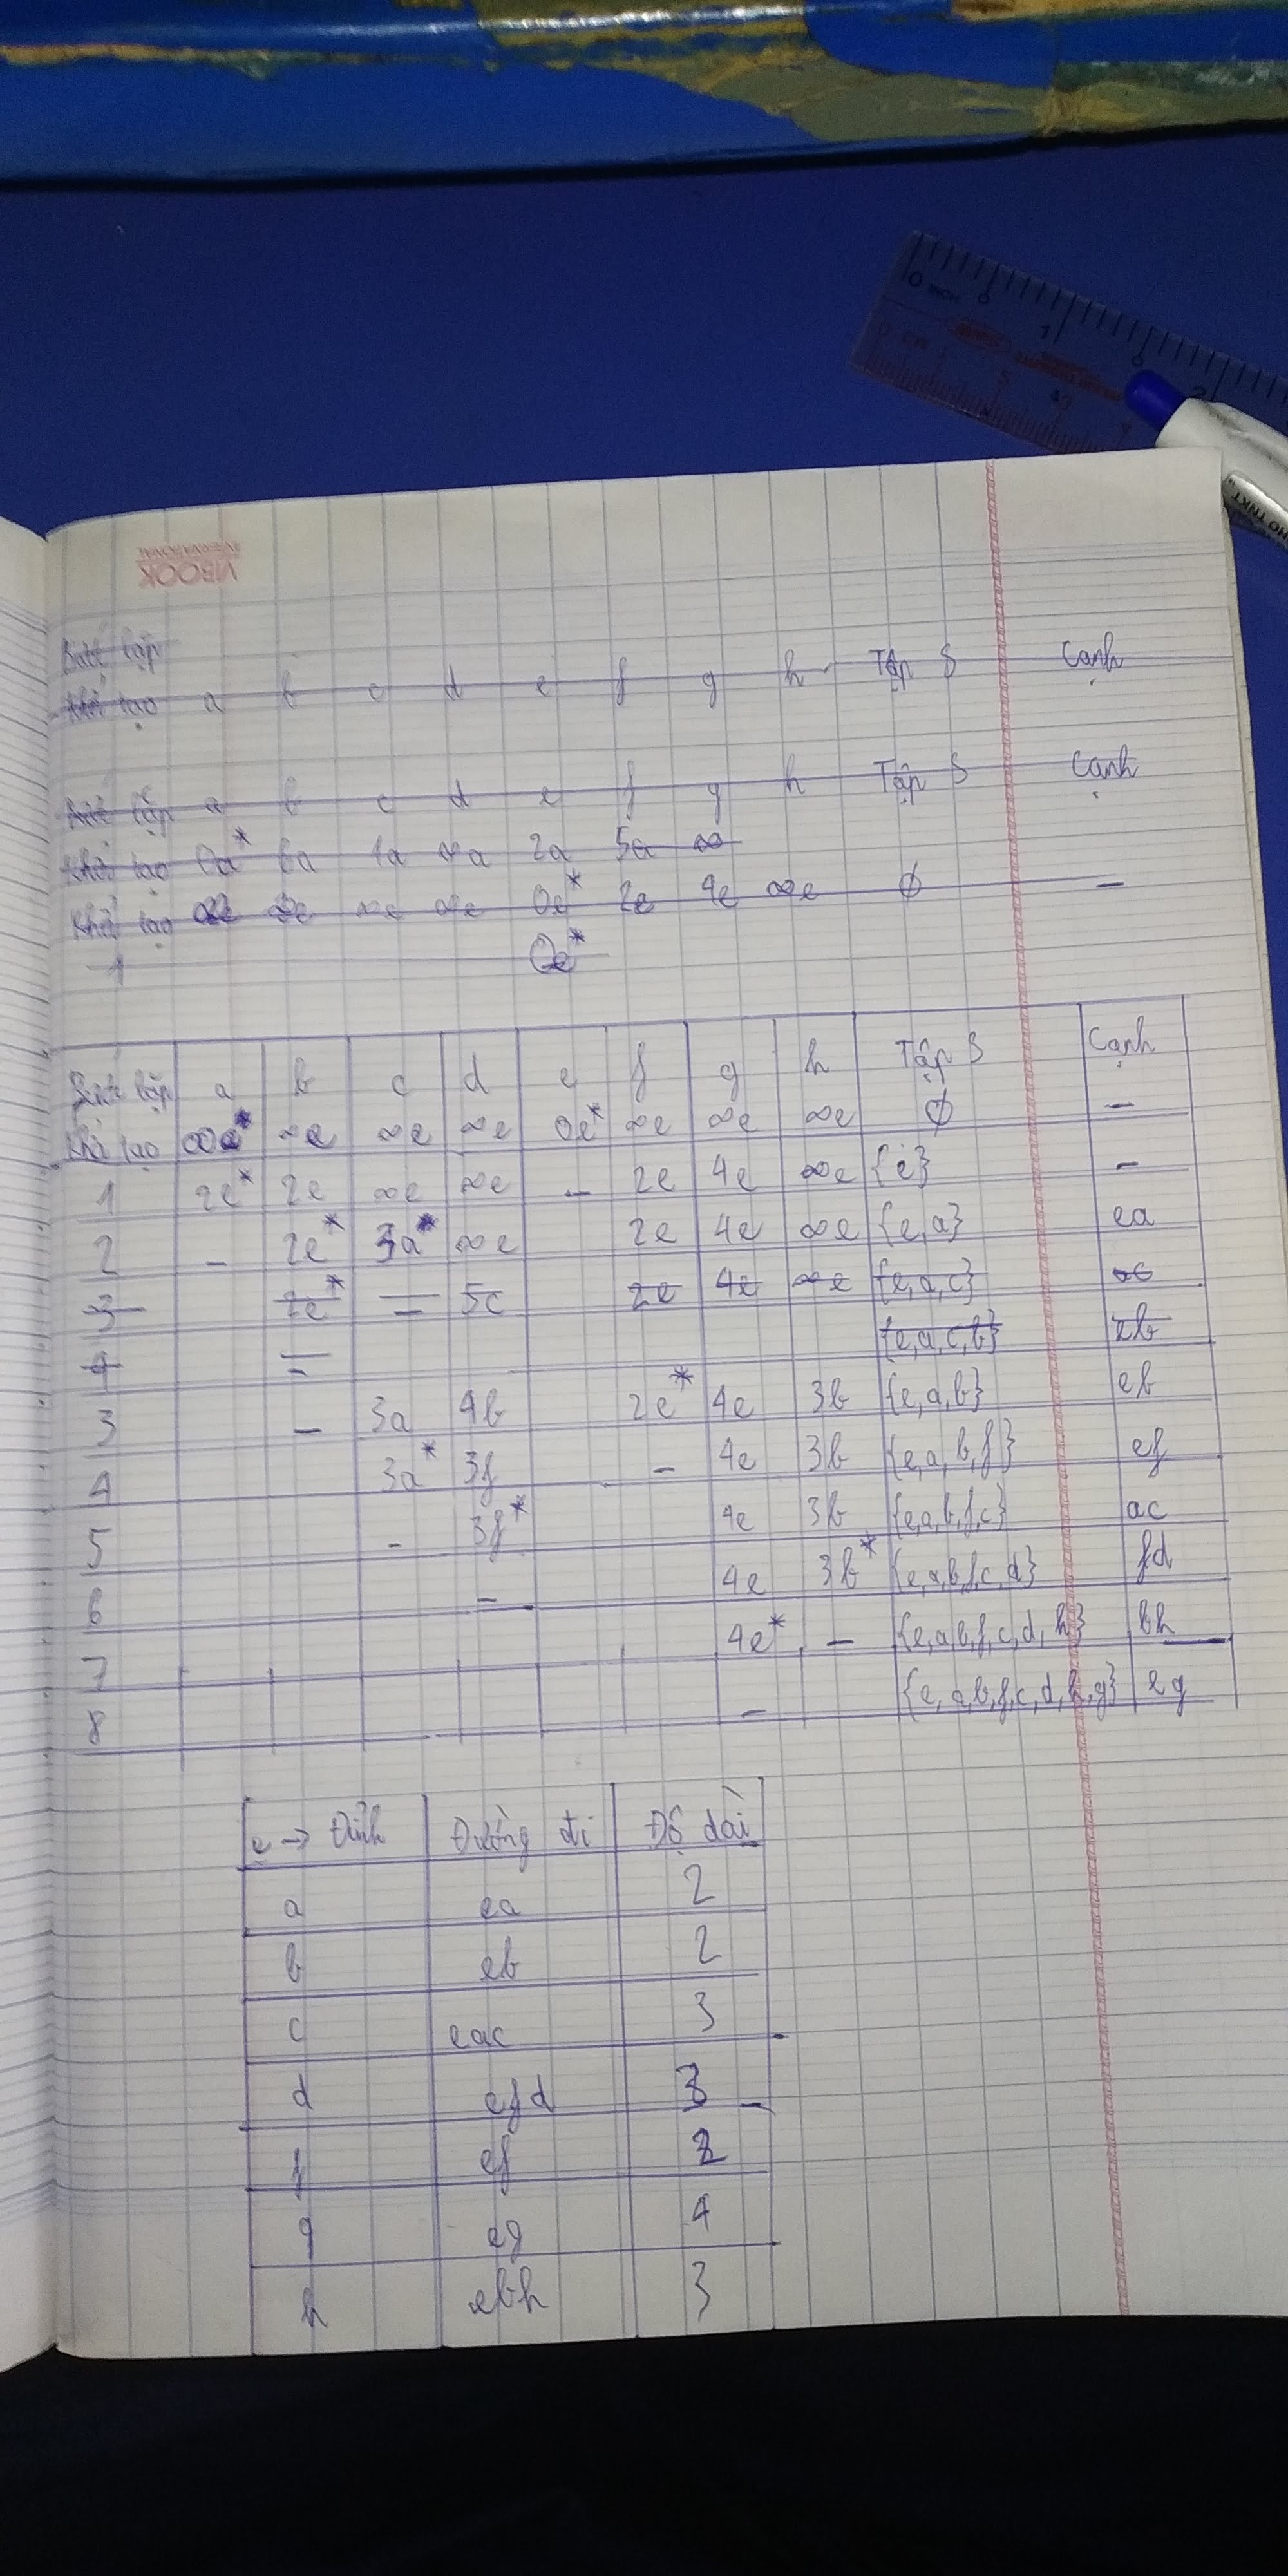 VIBOOK
INTERNATIONAL
0 INCH 1 2
0 CM
HO TNKT
Bước lặp
Khởi tạo a b c d e f g h Tập S Cạnh
Bước lặp a b c d e f g h Tập S Cạnh
Khởi tạo 0a* 6a 1a ∞a 2a 5a ∞
Khởi tạo ∞e ∞e ∞e ∞e 0e* 2e 4e ∞e ∅ –
1 0e*
Bước lặp a b c d e f g h Tập S Cạnh
Khở tạo ∞e* ∞e ∞e ∞e 0e* ∞e ∞e ∞e ∅ –
1 2e* 2e ∞e ∞e – 2e 4e ∞e {e} –
2 – 2e* 3a* ∞e 2e 4e ∞e {e,a} ea
3 2e* – 5c 2e 4e ∞e {e,a,c} ac
4 – {e,a,c,b} eb
3 – 3a 4b 2e* 4e 3b {e,a,b} eb
4 3a* 3f – 4e 3b {e,a,b,f} ef
5 – 3f* 4e 3b {e,a,b,f,c} ac
6 – 4e 3b* {e,a,b,f,c,d} fd
7 4e* – {e,a,b,f,c,d,h} bh
8 – {e,a,b,f,c,d,h,g} eg
e → Đỉnh Đường đi Độ dài
a ea 2
b eb 2
c eac 3
d efd 3
f ef 2
g eg 4
h ebh 3